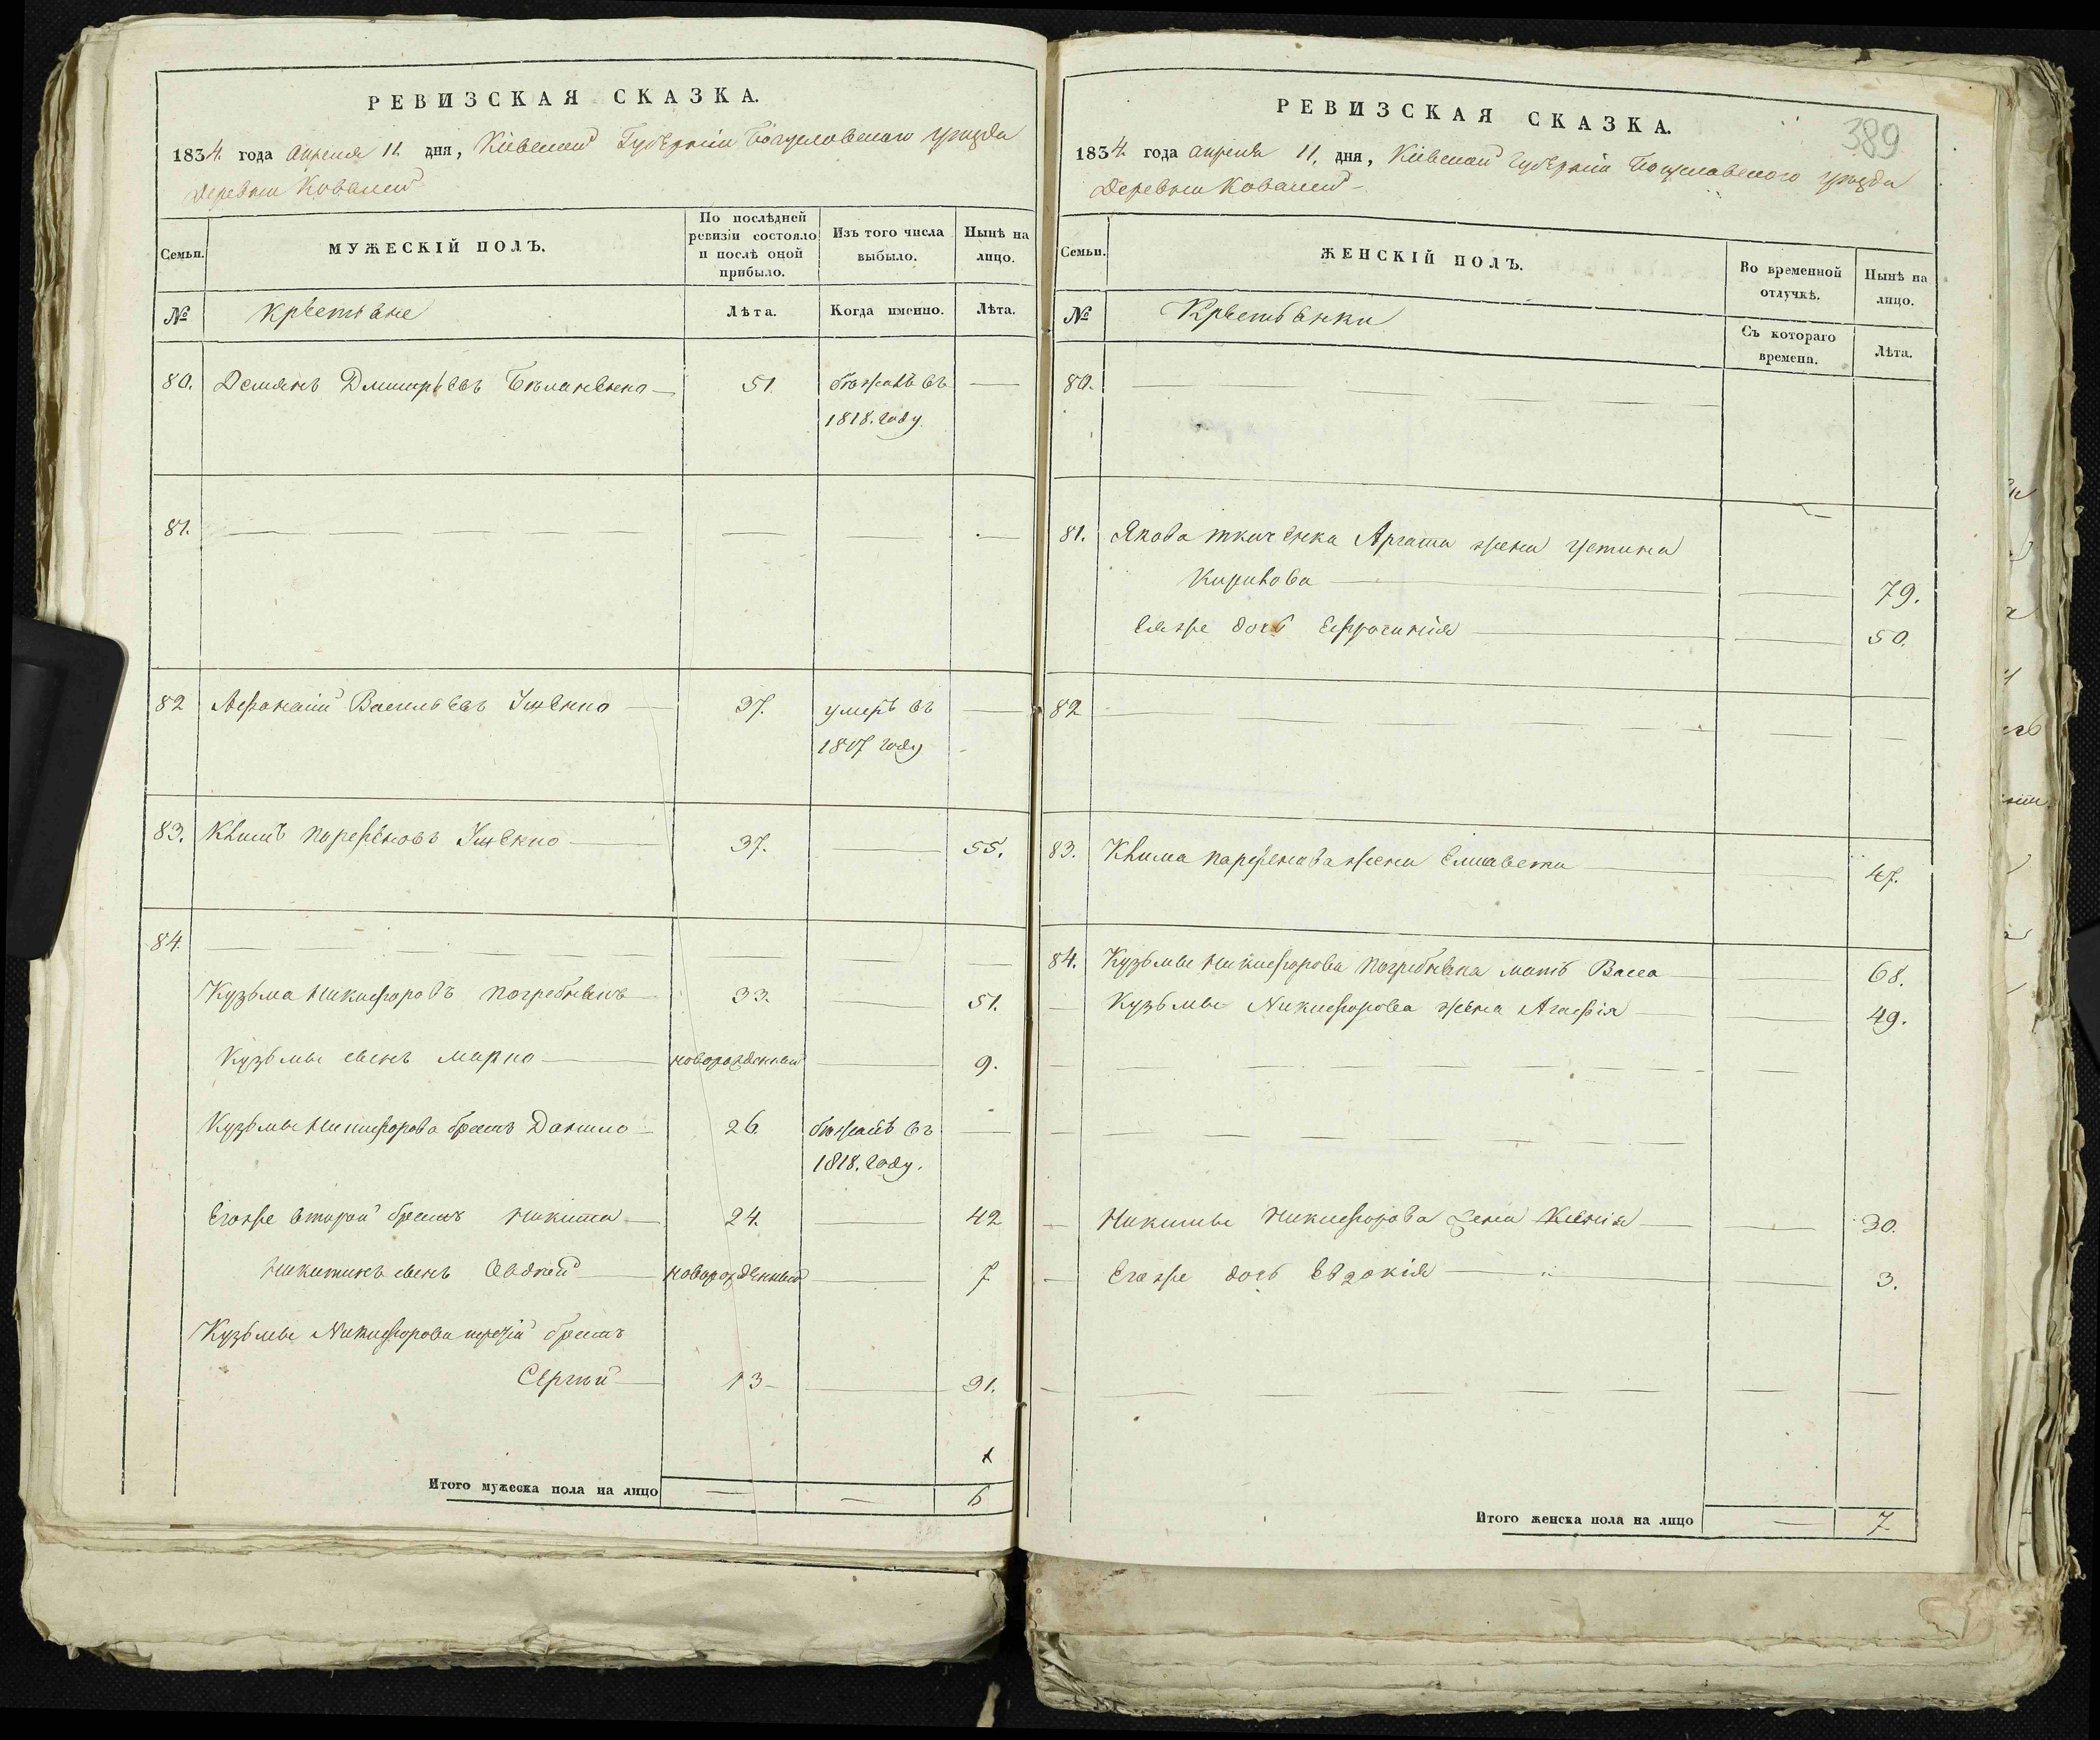 РЕВИЗСКАЯ СКАЗКА.
1834. года апреля 11. дня, Кіевской Губерніи Богуславского уезда
Деревни Кованей
Семьи.
МУЖЕСКІЙ ПОЛЪ.
По послѣдней ревизіи состояло и послѣ оной прибыло.
Изъ того числа выбыло.
Нынѣ на лицо.
№ крестьяне Лѣта. Когда именно. Лѣта.
80. Демянъ Дмитріевъ 51. бежалъ въ —
1818. году
81. — — — —
82 Афанасий Васильевъ Ищенко 37. умеръ въ —
1817 году
83. Ефимъ Парфеновъ Ищенко 37. — 55.
84. — — — —
Кузьма Никифоровъ Погребнякъ 33. — 51.
Кузьмы сынъ Марко новорожденный — 9.
Кузьмы Никифорова братъ Данило 26. бежалъ въ —
1818. году.
Егоже второй братъ Никита 24. — 42
Никитинъ сынъ Авдей новорожденный — 7
Кузьмы Никифорова третій братъ
Сергѣй 13 — 31.
Итого мужеска пола на лицо — — 6
РЕВИЗСКАЯ СКАЗКА.
389
1834. года апреля 11, дня, Кіевской Губерніи Богуславского уезда
Деревни Кованей
Семьи.
ЖЕНСКІЙ ПОЛЪ.
Во временной отлучкѣ.
Нынѣ на лицо.
№ Крестьянки Съ котораго времени. Лѣта.
80. —
81. Якова Ткаченка жена Устина
Кирилова — — 79.
Еяже дочь Ефросинія — — 50.
82 — — —
83. Ефима Парфенова жена Елисавета — 47.
84. Кузьмы Никифорова Погребняка мать Васса — 68.
— Кузьмы Никифорова жена Агафія — 49.
— — —
— — —
— Никиты Никифорова жена Ксенія — 30.
— Егоже дочь Евдокія — — 3.
— — — —
Итого женска пола на лицо — 7